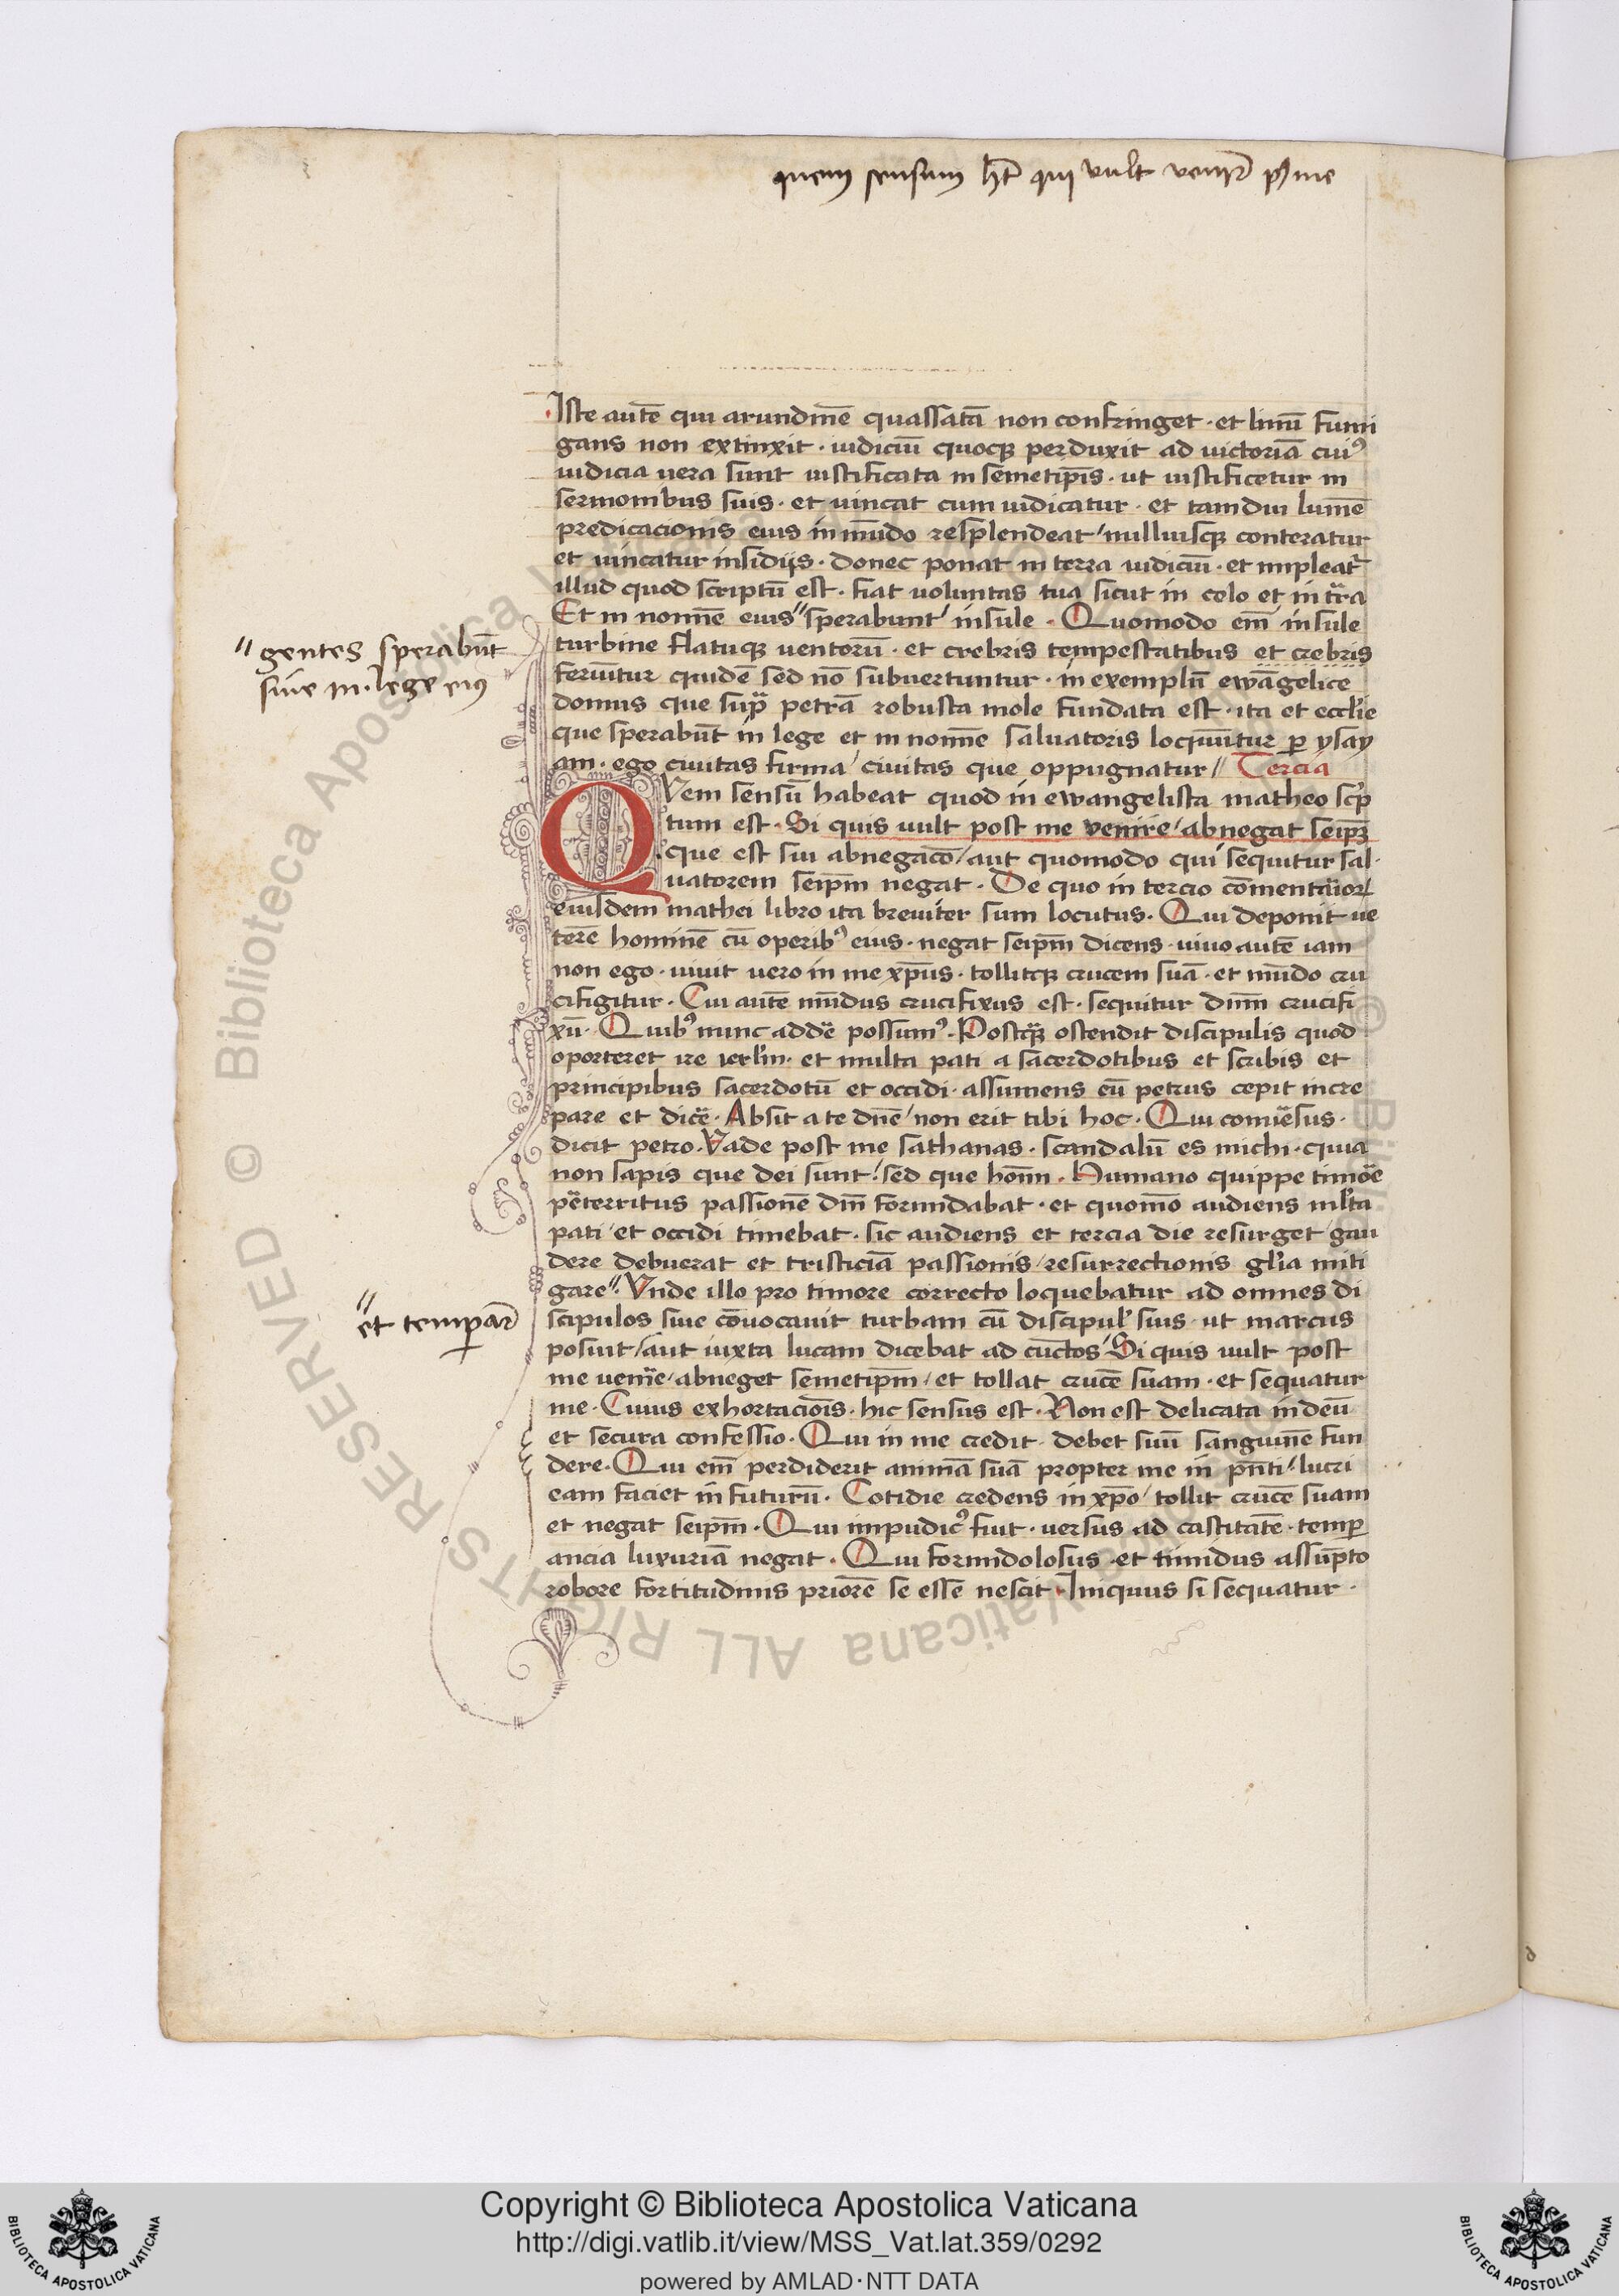 quem sensum hꝫ̄ qui vult venire p9 me
Iste autē qui arundinē quassatā non confringet · et linū fumi
gans non extinxit · iudiciū quocꝫ perduxit ad uictoriā cui9
iudicia uera sunt iustificata in semetip̄is · ut iustificetur in
sermonibus suis · et uincat cum iudicatur · et tamdiu lumē
predicacionis eius in mūdo resplendeat / nulliusqꝫ conteratur
et uincatur insidijs · donec ponat in terra iudiciū · et impleat᷑
illud quod scriptū est · fiat uoluntas tua sicut in celo et in tr̄a
Et in nomīe eius " sperabunt / insule · Quomodo em̄ insule
" gentes sperabūt
siue in · lege ei9
turbine flatuqꝫ uentorū · et crebris tempestatibus et crebris
feriūtur quidē sed nō subuertuntur · in exemplū ewāgelice
domus que supͣ petrā robusta mole fundata est · ita et eccl̄ie
que sperabūt in lege et in nomīe saluatoris loquūtur ꝑ ysay
am · ego ciuitas firma / ciuitas que oppugnatur // Tercia
QVem sensū habeat quod in ewangelista matheo scͥp
tum est · Si quis uult post me venire / abnegat seip̄ꝫ
que est sui abnegacō / aut quomodo qui sequitur sal·
uatorem seip̄m negat · De quo in tercio cōmentarior/
eiusdem mathei libro ita breuiter sum locutus · Qui deponit ue
terē hominē cū operib9 eius · negat seip̄m dicens · uiuo autē iam
non ego · uiuit uero in me xp̄us · tollitqꝫ crucem suā · et mūdo cru
cifigitur · Cui autē mūdus crucifixus est · sequitur dn̄m crucifi
xū · Quib9 nunc addē possum9 · Postqͣꝫ ostendit discipulis quod
oporteret ire ierl̄m · et multa pati a sacerdotibus et scribis et
principibus sacerdotū et occidi · assumens eū petrus cepit incre
pare et dicē · Absit a te dn̄e / non erit tibi hoc · Qui conu̾sus ·
dicit petro · Vade post me sathanas · scandalū es michi · quia
non sapis que dei sunt / sed que hoīm · Humano quippe timōe
ꝑterritus passionē dn̄i formidabat · et quomō audiens ml̄ta
pati / et occidi timebat · sic audiens et tercia die resurget / gau
dere debuerat et tristiciā passionis / resurrectionis gl̄ia miti
gare " · Vnde illo pro timore correcto loquebatur ad omnes di
" et temꝑar̄
scipulos siue cōuocauit turbam cū discipul᷑ suis · ut marcus
posuit / aut iuxta lucam dicebat ad cūctos / Si quis uult post
me uenīre / abneget semetip̄m / et tollat crucē suam · et sequatur
me · Cuius exhortaciōis · hic sensus est · Non est delicata in deū
et secura confessio · Qui in me credit · debet suū sanguinē fun
dere · Qui em̄ perdiderit animā suā propter me in pn̄ti / lucri
eam faciet in futurū · Cotidie credens in xp̄o / tollit crucē suam
et negat seip̄m · Qui impudic9 fuit · uersus ad castitatē · temꝑ
ancia luxuriā negat · Qui formidolosus · et timidus assūpto
robore fortitudinis priorē se esse nescit · Iniquus si sequatur ·
Copyright © Biblioteca Apostolica Vaticana
http://digi.vatlib.it/view/MSS_Vat.lat.359/0292
powered by AMLAD·NTT DATA